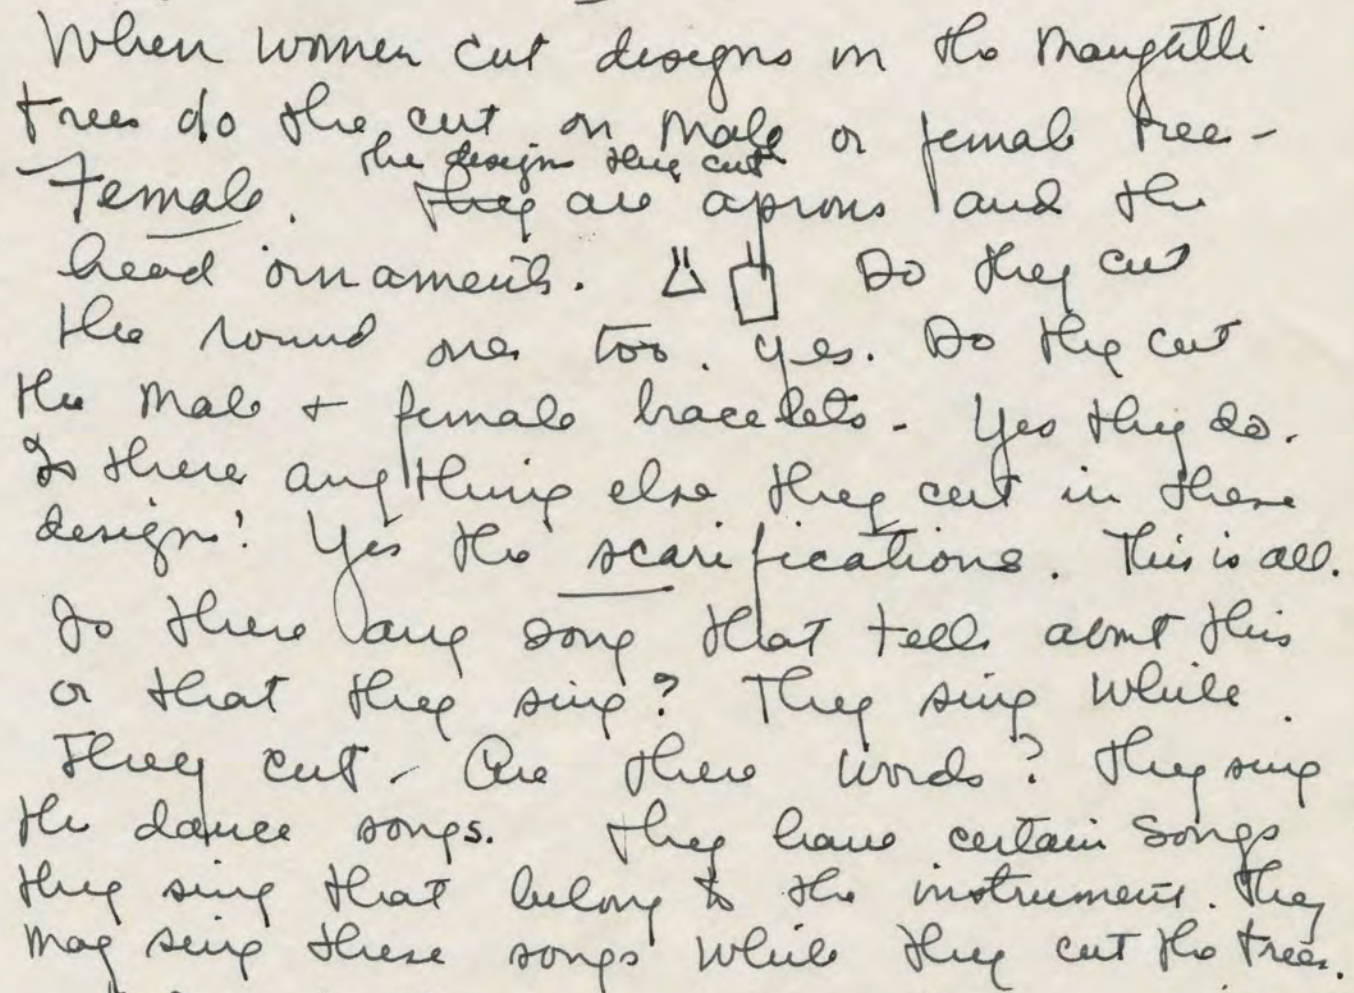 When women cut designs in the Mangetti
trees do the cut on male or female tree -
the designs they cut
Female. They are aprons and the
head ornaments. Do they cut
the round ones too. yes. Do they cut
the male + female bracelets. Yes they do.
Is there any thing else they cut in these
designs? Yes the scarifications. This is all.
Is there any song that tells about this
or that they sing? They sing while
They cut - Are there words? they sing
the dance songs. they have certain songs
they sing that belong to the instrument. They
may sing these songs while they cut the trees.